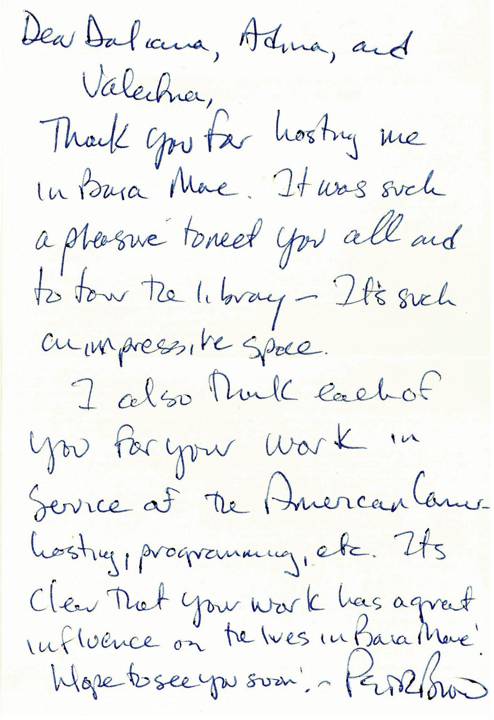 Dear Daliana, Adina, and
Valentina,
Thank you for hosting me
in Baia Mare. It was such
a pleasure to meet you all and
to tour the library – It's such
an impressive space.
I also thank each of
you for your work in
service of the American Corner-
hosting, programming, etc. It's
clear that your work has a great
influence on the lives in Baia Mare!
Hope to see you soon! ~